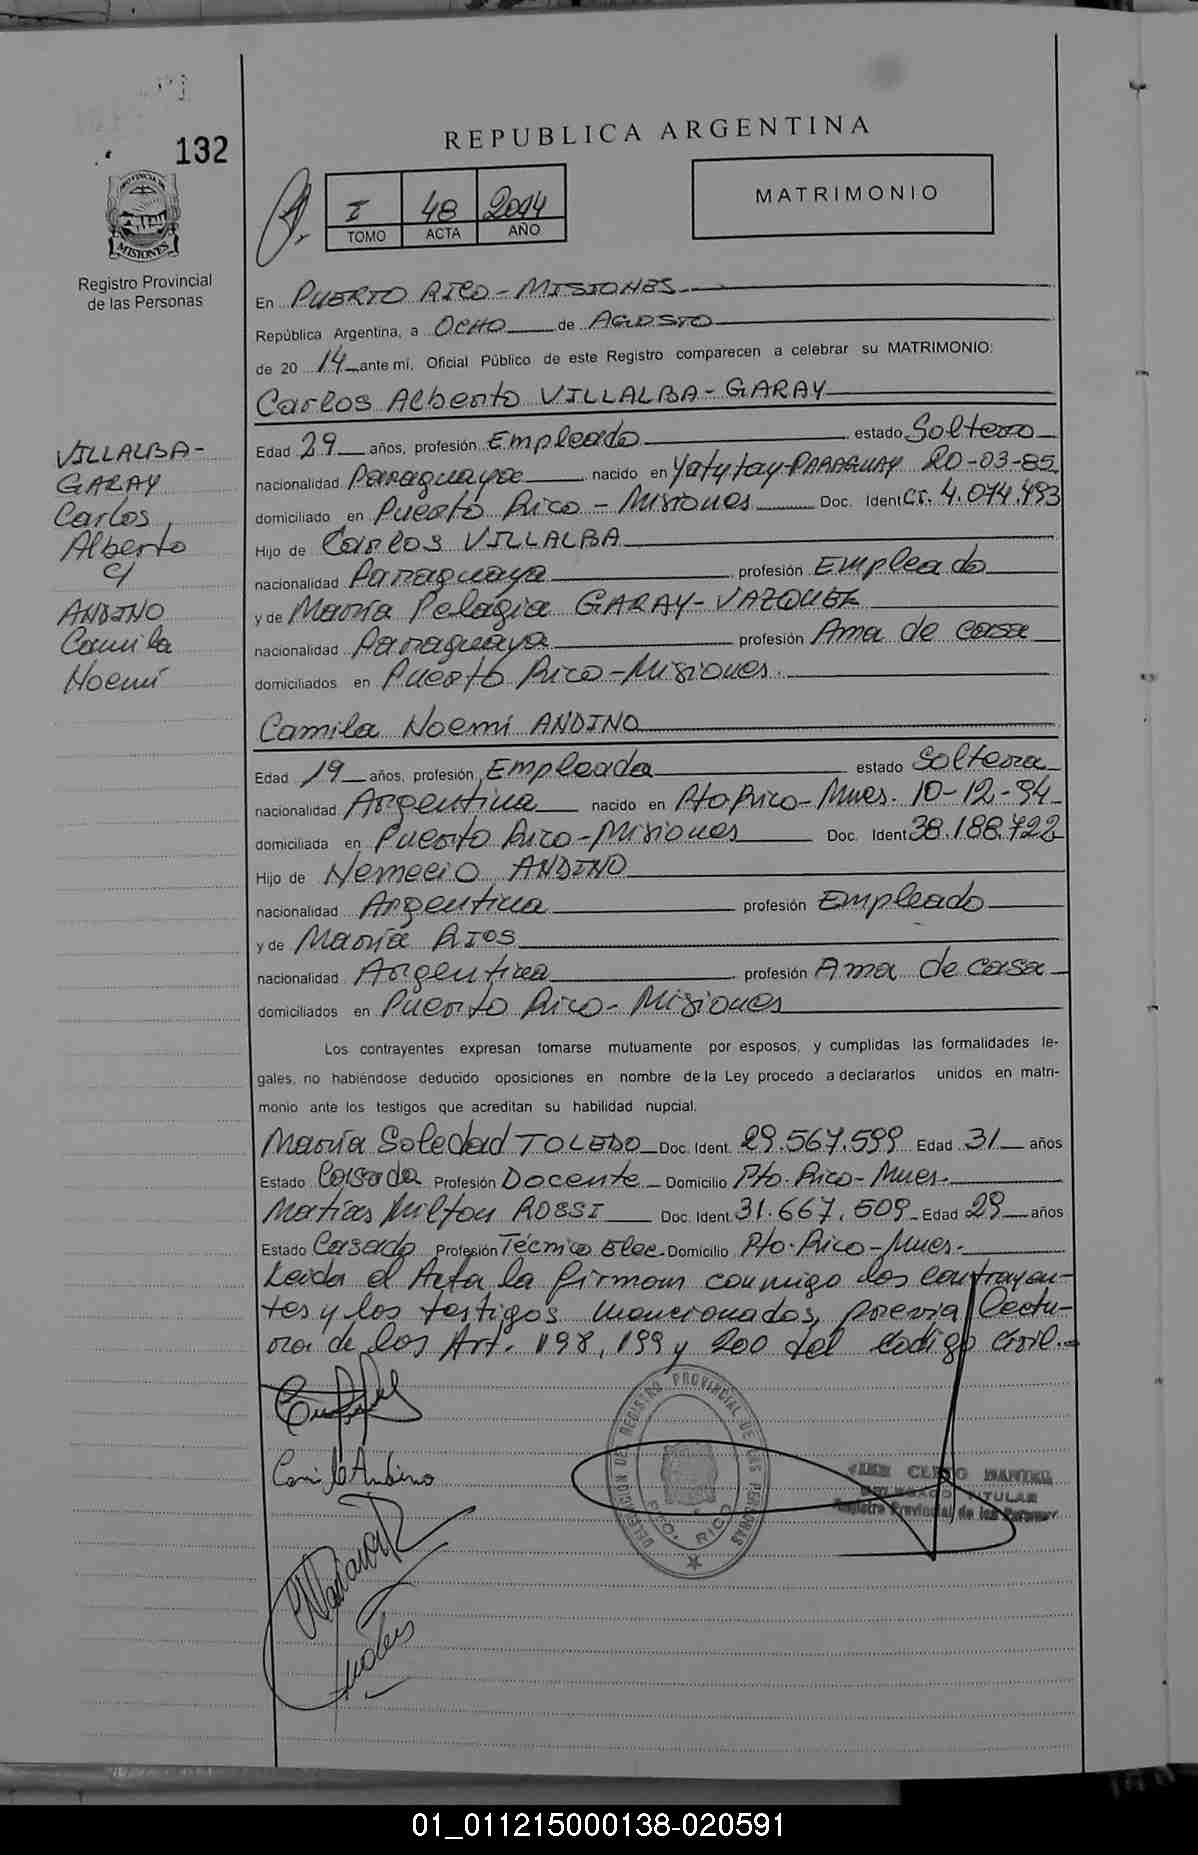 132
PROVINCIA DE
MISIONES
Registro Provincial
de las Personas
REPUBLICA ARGENTINA
I 48 2014
TOMO ACTA AÑO
MATRIMONIO
En PUERTO RICO - MISIONES
República Argentina, a OCHO de AGOSTO
de 20 14 ante mi, Oficial Público de este Registro comparecen a celebrar su MATRIMONIO:
Carlos Alberto VILLALBA-GARAY
Edad 29 años, profesión Empleado estado Soltero
nacionalidad Paraguaya nacido en Yatytay-PARAGUAY 20-03-85
domiciliado en Puerto Rico - Misiones Doc. Ident CI. 4.074.493
Hijo de Carlos VILLALBA
nacionalidad Paraguaya profesión Empleado
y de María Pelagia GARAY-VAZQUEZ
nacionalidad Paraguaya profesión Ama de casa
domiciliados en Puerto Rico-Misiones.
VILLALBA-
GARAY
Carlos
Alberto
c/
ANDINO
Camila
Noemí
Camila Noemí ANDINO
Edad 19 años, profesión Empleada estado Soltera
nacionalidad Argentina nacido en Pto Rico-Mnes. 10-12-94
domiciliada en Puerto Rico-Misiones Doc. Ident 38.188.722
Hijo de Nemecio ANDINO
nacionalidad Argentina profesión Empleado
y de María RIOS
nacionalidad Argentina profesión Ama de casa
domiciliados en Puerto Rico-Misiones
Los contrayentes expresan tomarse mutuamente por esposos, y cumplidas las formalidades le-
gales, no habiéndose deducido oposiciones en nombre de la Ley procedo a declararlos unidos en matri-
monio ante los testigos que acreditan su habilidad nupcial.
María Soledad TOLEDO Doc. Ident. 29.567.599 Edad 31 años
Estado Casada Profesión Docente Domicilio Pto. Rico-Mnes.
Matías Milton ROSSI Doc. Ident. 31.667.509 Edad 29 años
Estado Casado Profesión Técnico Elec. Domicilio Pto. Rico-Mnes.
Leida el Acta la firman conmigo los contrayen-
tes y los testigos mencionados, previa lectu-
ra de los Art. 198, 199 y 200 del Codigo Civil.
Camila Andino
DELEGACION DEL REGISTRO PROVINCIAL DE LAS PERSONAS
PTO. RICO
DELEGADO TITULAR
Registro Provincial de las Personas
01_011215000138-020591